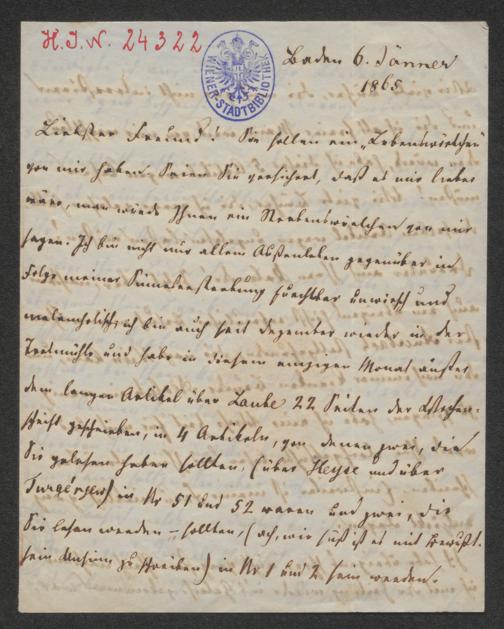 H.I.N. 24322
WIENER-STADTBIBLIOTHEK
Baden 6. Jänner
1865
Liebster Freund! Sie sollen ein „Lebenswörtchen
von mir haben. Seien Sie versichert, daß es mir lieber
wäre, man würde Ihnen ein Sterbenswörtchen von mir
sagen. Ich bin nicht nur allem Außenleben gegenüber in
Folge meiner Sinneserkrankung furchtbar unwirsch und
melancholisch; ich bin auch seit Dezember wieder in der
Tretmühle und habe in diesem einzigen Monat außer
dem langen Artikel über Laube 22 Seiten der Wochen-
schrift geschrieben, in 4 Artikeln, von denen zwei, die
Sie gelesen haben sollten, (über Heyse und über
Turgénjew) in Nr 51 und 52 waren und zwei, die
Sie lesen werden – sollten, (ach, wie süß ist es mit Bewußt-
sein Unsinn zu schreiben) in Nr 1 und 2 sein werden.